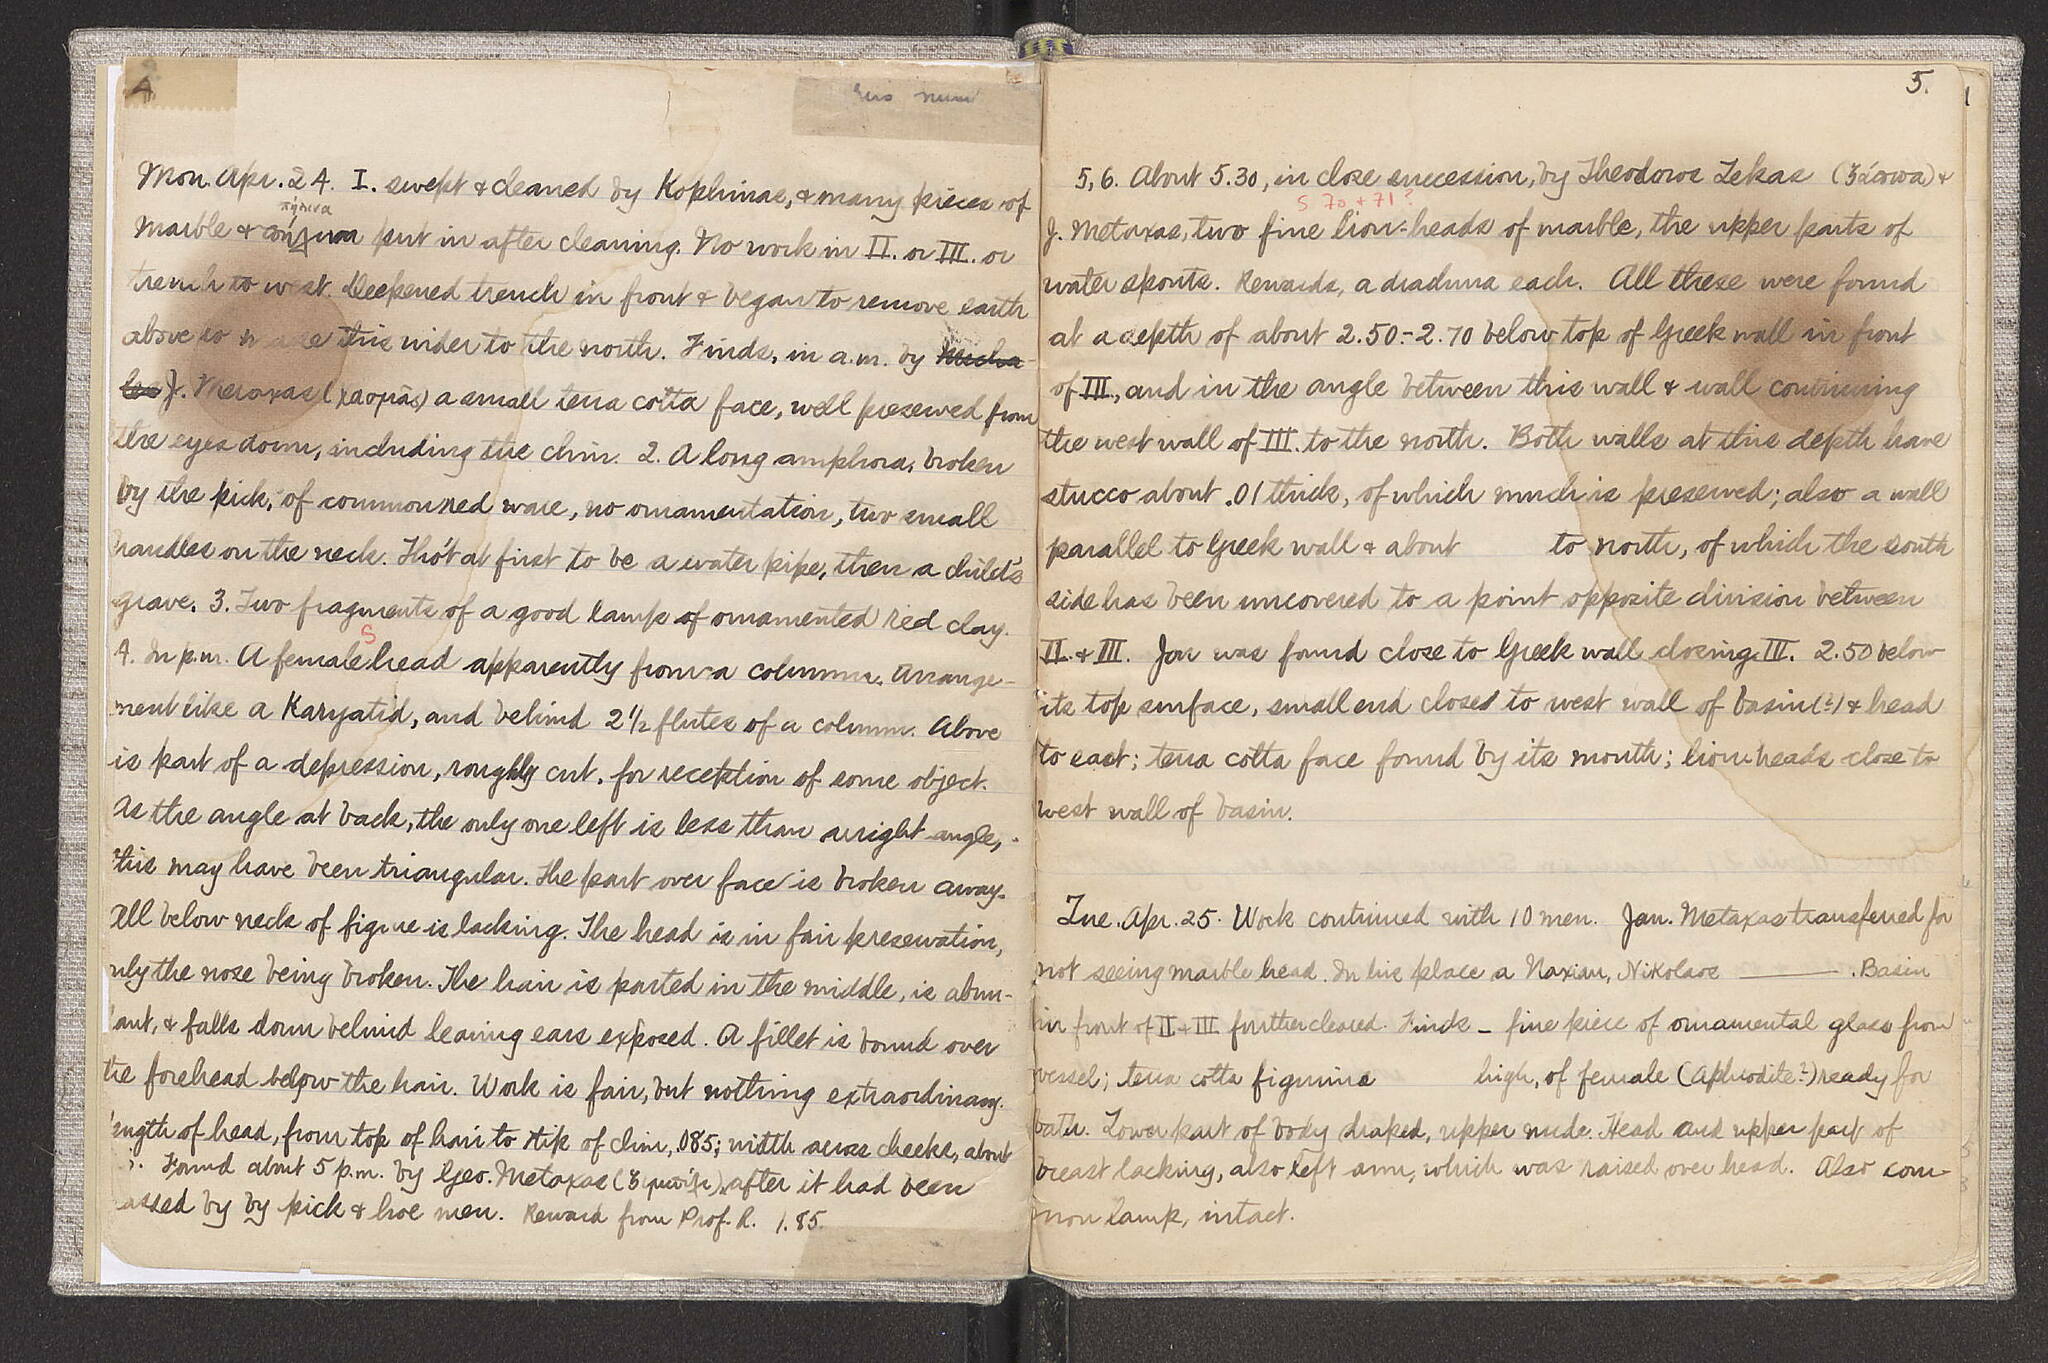 4
Mon. Apr. 24. I. swept & cleaned by Kophinas, & many pieces of
πήλινα
Marble & put in after cleaning. No work in II. or III. or
trench to west. Deepened trench in front & began to remove earth
above to make this wider to the north. Finds, in a.m. by
J. Metaxas a small terra cotta face, well preserved from
the eyes down, including the chin. 2. A long amphora, broken
by the pick, of common red ware, no ornamentation, two small
handles on the neck. Tho't at first to be a water pipe, then a child's
grave. 3. Two fragments of a good lamp of ornamented red clay.
S
4. In p.m. A female head apparently from a column. Arrange-
ment like a Karyatid, and behind 2 1/2 flutes of a column. Above
is part of a depression, roughly cut, for reception of some object.
As the angle at back, the only one left is less than a right angle,
this may have been triangular. The part over face is broken away.
All below neck of figure is lacking. The head is in fair preservation,
only the nose being broken. The hair is parted in the middle, is abun-
dant, & falls down behind leaving ears exposed. A fillet is bound over
the forehead below the hair. Work is fair, but nothing extraordinary.
Length of head, from top of hair to tip of chin, .085; width across cheeks, about
Found about 5 p.m. by Geo. Metaxas after it had been
passed by by pick & hoe men. Reward from Prof. R. 1.85.
5.
5, 6. About 5.30, in close succession, by Theodoros Lekas (ζάσσα) &
S 70 + 71?
J. Metaxas, two fine lion-heads of marble, the upper parts of
water spouts. Rewards, a drachma each. All these were found
at a depth of about 2.50 - 2.70 below top of Greek wall in front
of III., and in the angle between this wall & wall continuing
the west wall of III. to the north. Both walls at this depth have
stucco about .01 thick, of which much is preserved; also a wall
parallel to Greek wall & about to north, of which the south
side has been uncovered to a point opposite division between
II. & III. Jar was found close to Greek wall closing III. 2.50 below
its top surface, small end closed to west wall of basin(?) & head
to east; terra cotta face found by its mouth; lion heads close to
west wall of basin.
Tue. Apr. 25. Work continued with 10 men. Jan. Metaxas transferred for
not seeing marble head. In his place a Naxian, Nikolaos ———. Basin
in front of II + III further cleared. Finds – fine piece of ornamental glass from
vessel; terra cotta figurine high, of female (Aphrodite?) ready for
bath. Lower part of body draped, upper nude. Head and upper part of
breast lacking, also left arm, which was raised over head. Also com-
mon lamp, intact.